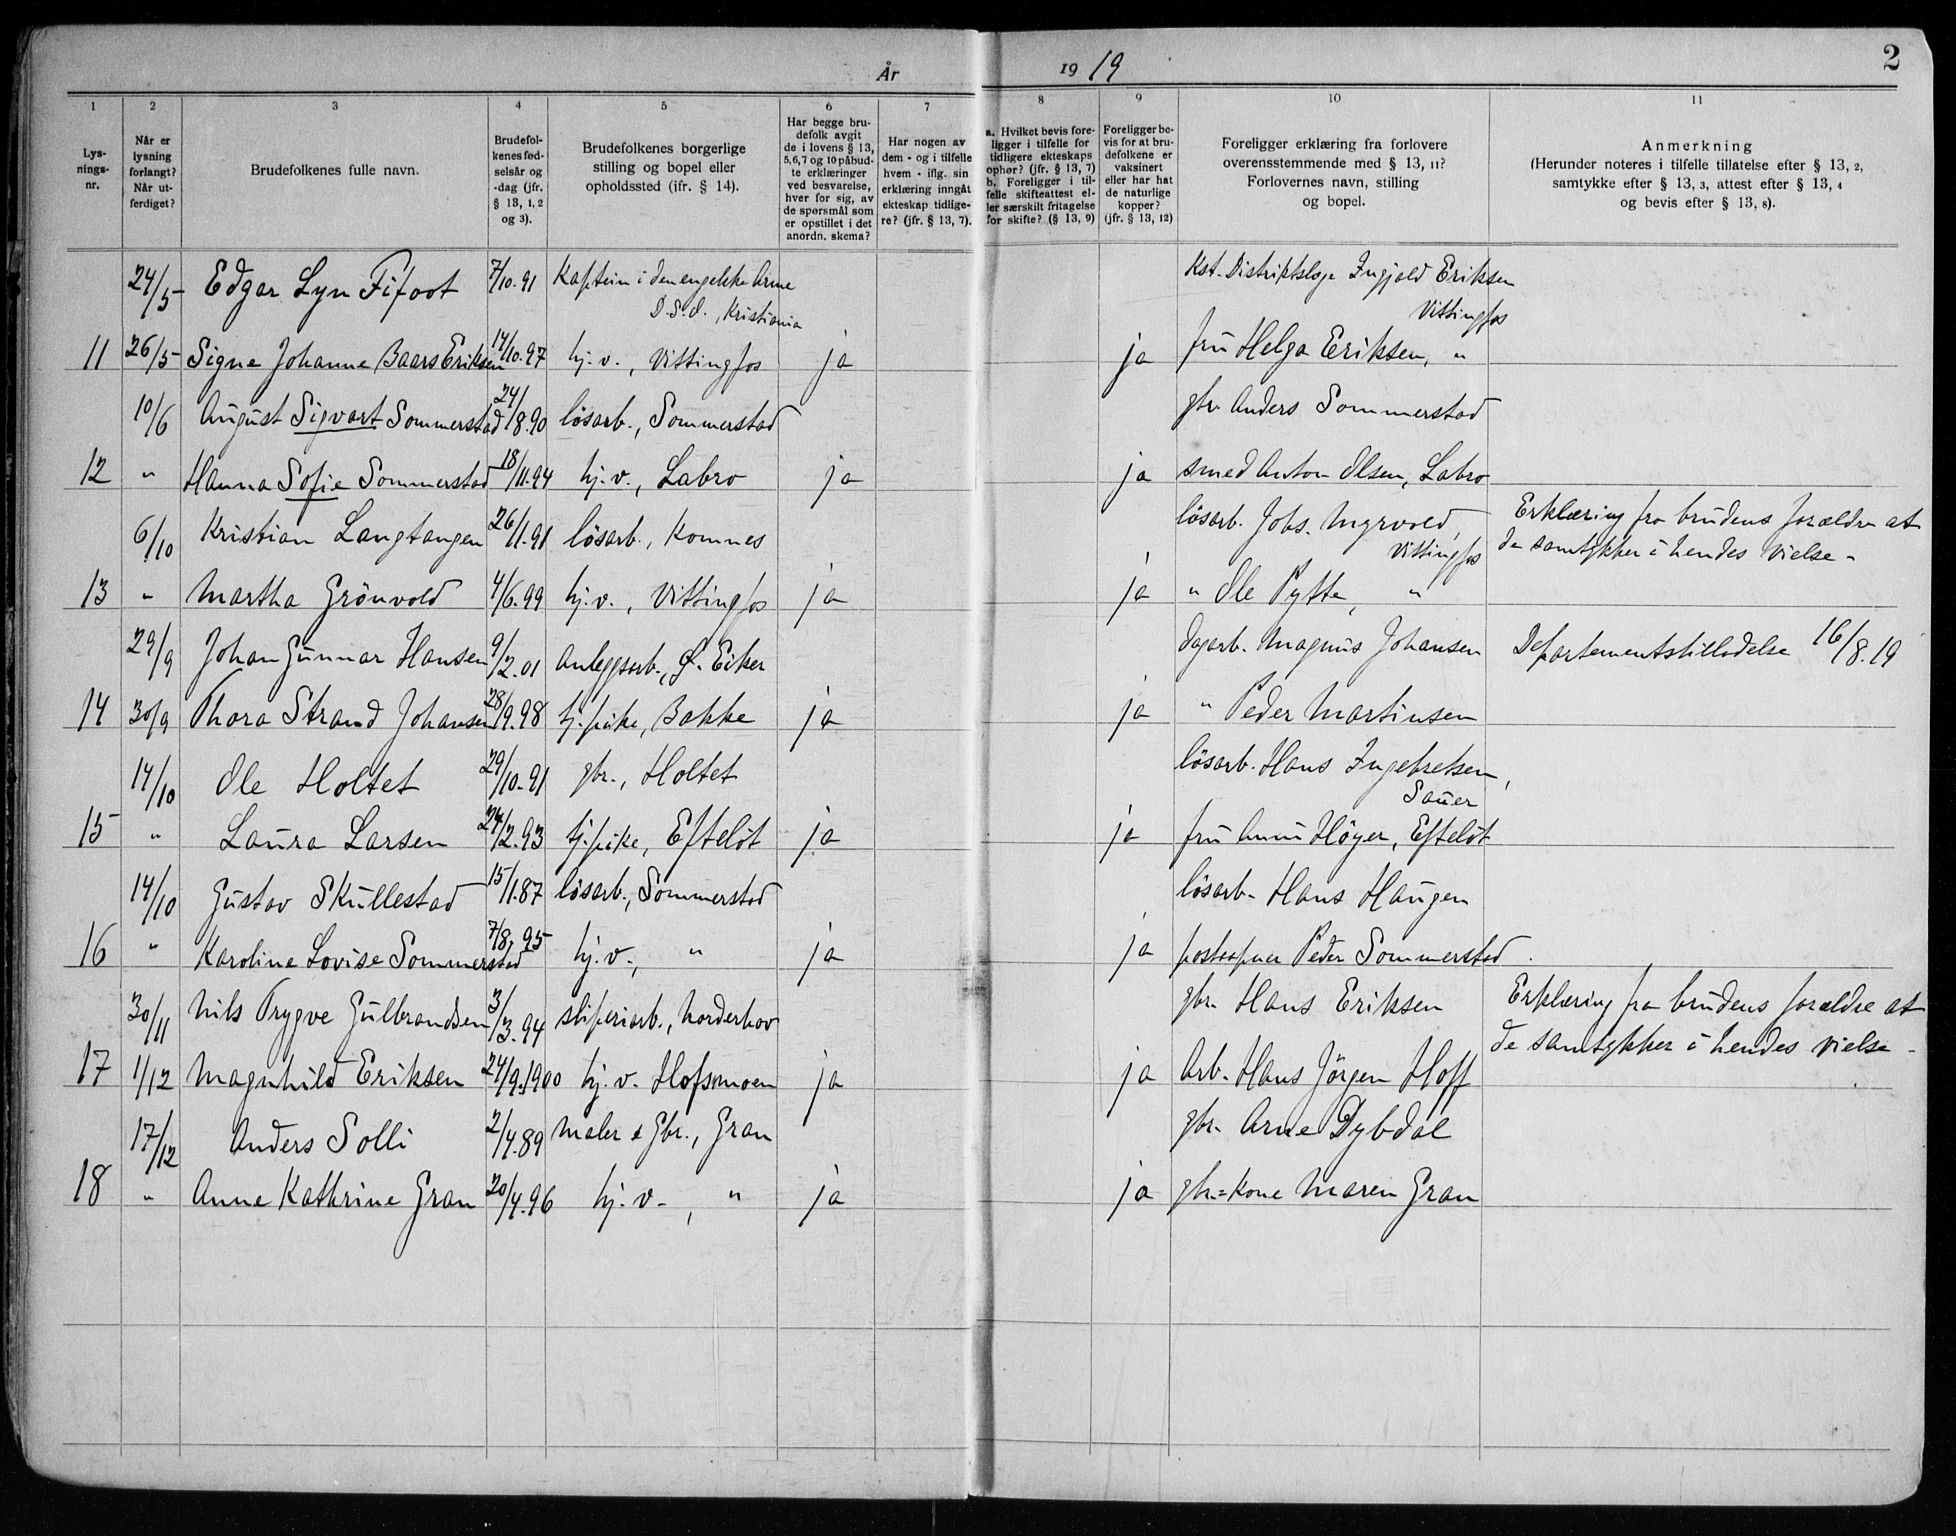 År 1919
2
1 2 3 4 5 6 7 8 9 10 11
Lys-
nings-
nr.
Når er
lysning
forlangt?
Når ut-
ferdiget?
Brudefolkenes fulle navn.
Brudefol-
kenes fød-
selsår og
-dag (jfr.
§ 13, 1, 2
og 3).
Brudefolkenes borgerlige
stilling og bopel eller
opholdssted (jfr. § 14).
Har begge bru-
defolk avgit
de i lovens § 13,
5,6,7 og 10 påbud-
te erklæringer
ved besvarelse,
hver for sig, av
de spørsmål som
er opstillet i det
anordn. skema?
Har nogen av
dem - og i tilfelle
hvem - iflg. sin
erklæring inngåt
ekteskap tidlige-
re? (jfr. § 13, 7).
a. Hvilket bevis fore-
ligger i tilfelle for
tidligere ekteskaps
ophør? (jfr. § 13, 7)
b. Foreligger i til-
felle skifteattest el-
ler særskilt fritagelse
for skifte? (§ 13, 9)
Foreligger be-
vis for at bru-
defolkene er
vaksinert
eller har hat
de naturlige
kopper?
(jfr. § 13, 12)
Foreligger erklæring fra forlovere
overensstemmende med § 13, 11?
Forlovernes navn, stilling
og bopel.
Anmerkning
(Herunder noteres i tilfelle tillatelse efter § 13, 2,
samtykke efter § 13, 3, attest efter § 13, 4
og bevis efter § 13, 8).
24/5 Edgar Lyn Fifoot 7/10.91 Kaptein i den engelske Arme
D.S.O., Kristiania
Kst. Distriktslæge Ingjald Eriksen
Vittingfos
11 26/5 Signe Johanne Baars Eriksen 14/10.97 hj.v., Vittingfos ja ja fru Helga Eriksen, "
10/6 August Sigvart Sommerstad 24/8.90 lösarb., Sommerstad gbr. Anders Sommerstad
12 " Hanna Sofie Sommerstad 18/11.94 hj.v., Labro ja ja smed Anton Olsen, Labro
6/10 Kristian Langtangen 26/11.91 lösarb., Komnes lösarb. Johs. Myrvold,
Vittingfos
Erklæring fra brudens forældre at
de samtykker i hendes vielse -
13 " Martha Grönvold 4/6.99 hj.v., Vittingfos ja ja " Ole Pytte, "
29/9 Johan Gunnar Hansen 9/2.01 Anleggsarb., Ø. Eiker dagarb. Magnus Johansen Departementstilladelse 16/8.19
14 30/9 Thora Strand Johansen 28/9.98 tj.pike, Bakke ja ja " Peder Martinsen
14/10 Ole Holtet 29/10.91 gbr., Holtet lösarb. Hans Ingebretsen,
Sauer
15 " Laura Larsen 24/2.93 tj.pike, Efteløt ja ja fru Anni Höyer, Efteløt
14/10 Gustav Skullestad 15/1.87 lösarb., Sommerstad lösarb. Hans Haugen
16 " Karoline Lovise Sommerstad 7/8.95 hj.v., " ja ja postaapner Peder Sommerstad.
30/11 Nils Trygve Gulbrandsen 3/3.94 sliperiarb., Norderhov gbr. Hans Eriksen
Erklæring fra brudens forældre at
de samtykker i hendes vielse -
17 1/12 Magnhild Eriksen 24/9.1900 hj.v. Hofsmoen ja ja Arb. Hans Jörgen Hoff
17/12 Anders Solli 2/4.89 Maler & Gbr., Gran gbr. Arne Dybdal
18 " Anne Kathrine Gran 20/4.96 hj.v., " ja ja gbr.=kone Maren Gran